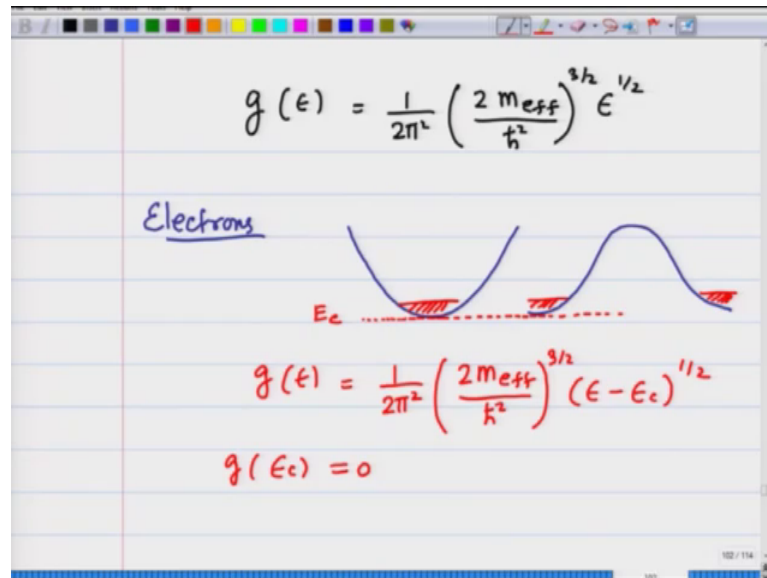 B I
g (ϵ) = 1/2π² (2 m_eff/ħ²)^3/2 ϵ^1/2
Electrons
E_c
g(ϵ) = 1/2π² (2m_eff/ħ²)^3/2 (ϵ - ϵ_c)^1/2
g(ϵ_c) = 0
102 / 114